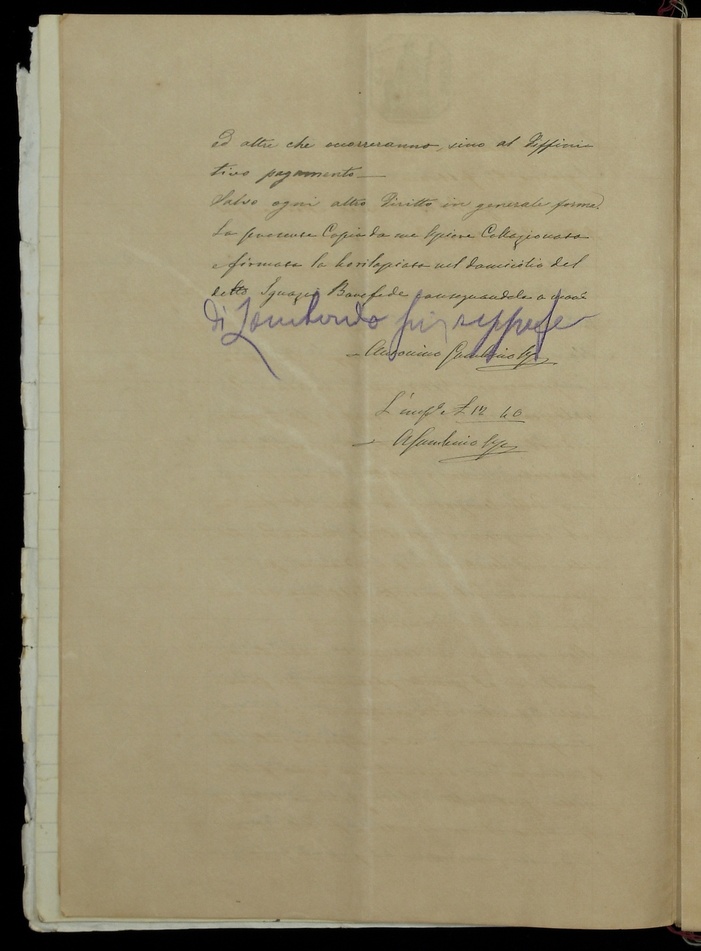 ed altri che occorreranno, sino al diffini
tivo pagamento
Salvo ogni altro Diritto in generale forma
La presente Copia da me Usciere Collazionata
e firmata la ho rilasciata nel domicilio del
detto Ignazio Bonafede consegnandola a mani
di Lombardo Giuseppe
Antonino Gambino
L 12 40
A Gambino